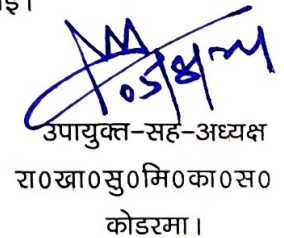 उपायुक्त-सह-अध्यक्ष
रा०खा०सु०मि०का०स०
कोडरमा।